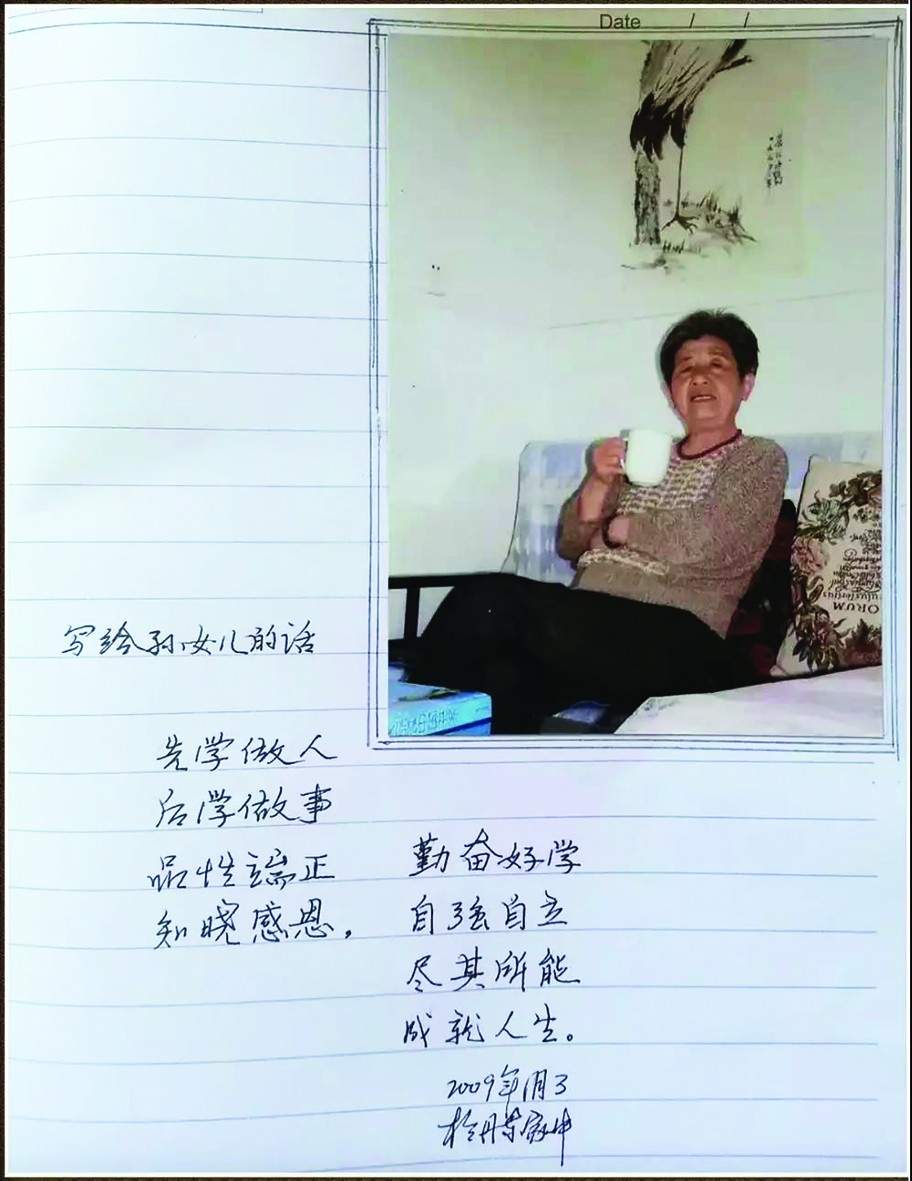 Date / /
写给孙女儿的话
先学做人
后学做事
品性端正
知晓感恩,
勤奋好学
自强自立
尽其所能
成就人生。
2009年1月3
于丹芩家中
ORUM